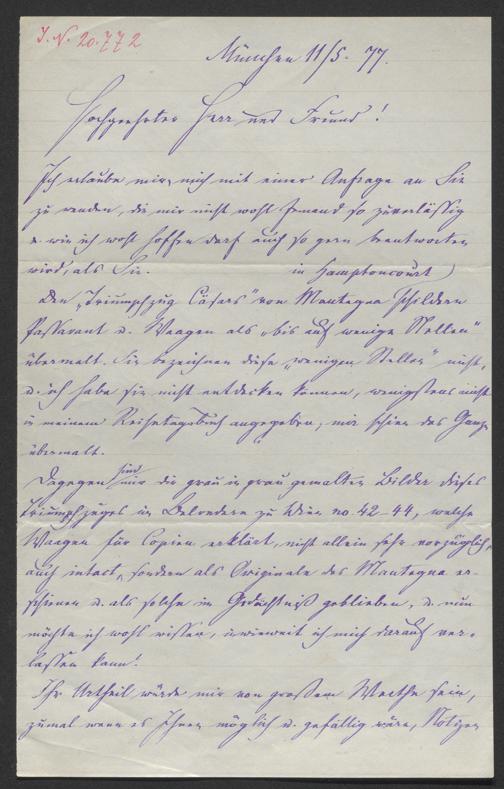 J. N. 20.772
München 11/5. 77.
Hochgeehrter Herr und Freund!
Ich erlaube mir, mich mit einer Anfrage an Sie
zu wenden, die mir nicht wohl Jemand so zuverlässig
u. wie ich wohl hoffen darf auch so gern beantworten
wird, als Sie. in Hamptoncourt)
Den „Triumphzug Cäsars" von Mantegna schildern
Passavant u. Waagen als „bis auf wenige Stellen"
übermalt. Sie bezeichnen diese „wenigen Stellen" nicht,
u. ich habe sie nicht entdecken können, wenigstens nicht
in meinem Reisetagebuch angegeben; mir schien das Ganze
übermalt.
Dagegen sind mir die grau in grau gemalten Bilder dieses
Triumphzuges im Belvedere zu Wien no. 42–44, welche
Waagen für Copien erklärt, nicht allein sehr vorzüglich,
auch intact, sondern als Originale des Mantegna er-
schienen u. als solche im Gedächtniß geblieben, u. nun
möchte ich wohl wissen, inwieweit ich mich darauf ver-
lassen kann!
Ihr Urtheil würde mir von großem Werthe sein,
zumal wenn es Ihnen möglich u. gefällig wäre, Notizen